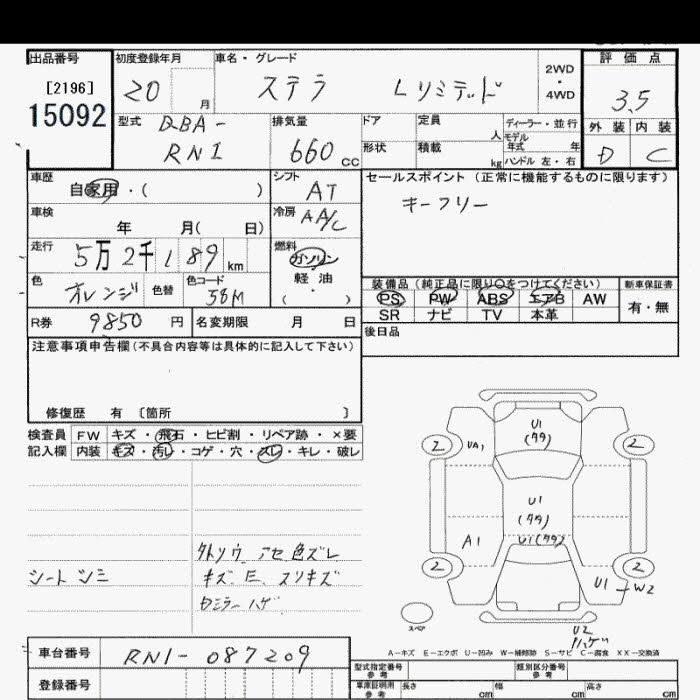 出品番号 初度登録年月 車名・グレード 評価点
[2196]
15092
20 月 ステラ Lリミテッド 2WD・4WD 3.5
型式 DBA-RN1 排気量 660cc ドア 定員 人 ディーラー・並行 外装 内装
形状 積載 kg モデル年式 年 ハンドル 左・右 D C
車歴 自家用・( ) シフト AT セールスポイント(正常に機能するものに限ります)
キーフリー
車検 年 月( 日) 冷房 AA/C
走行 5万2千189km 燃料 ガソリン
軽油
( ・ )
色 オレンジ 色替 色コード 58M
装備品(純正品に限り○をつけてください) 新車保証書
PS PW ABS エアB AW 有・無
SR ナビ TV 本革
R券 9850円 名変期限 月 日
後日品
注意事項申告欄(不具合内容等は具体的に記入して下さい)
修復歴 有 〔箇所 〕
検査員 FW キズ・飛石・ヒビ割・リペア跡・×要
記入欄 内装 キズ・汚レ・コゲ・穴・スレ・キレ・破レ
シートシミ
外トソウ アセ 色ズレ
キズ、E、スリキズ
ミラーハゲ
U1
(タタ)
2 UA1 2
U1
(タタ)
U1(タタ)
A1
2 2
U1 W2
スペア
U2
ハゲ
A-キズ E-エクボ U-凹み W-補修跡 S-サビ C-腐食 XX-交換済
車台番号 RN1-087209
登録番号
型式指定番号 参考 類別区分番号 参考
車庫証明用 参考 長さ cm 幅 cm 高さ cm